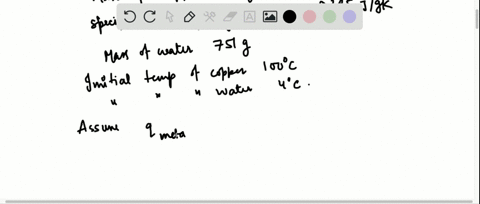 J/gK
speci
Mass of water 751 g
Initial temp of copper 100°C
" " " water 4°C.
Assume q meta